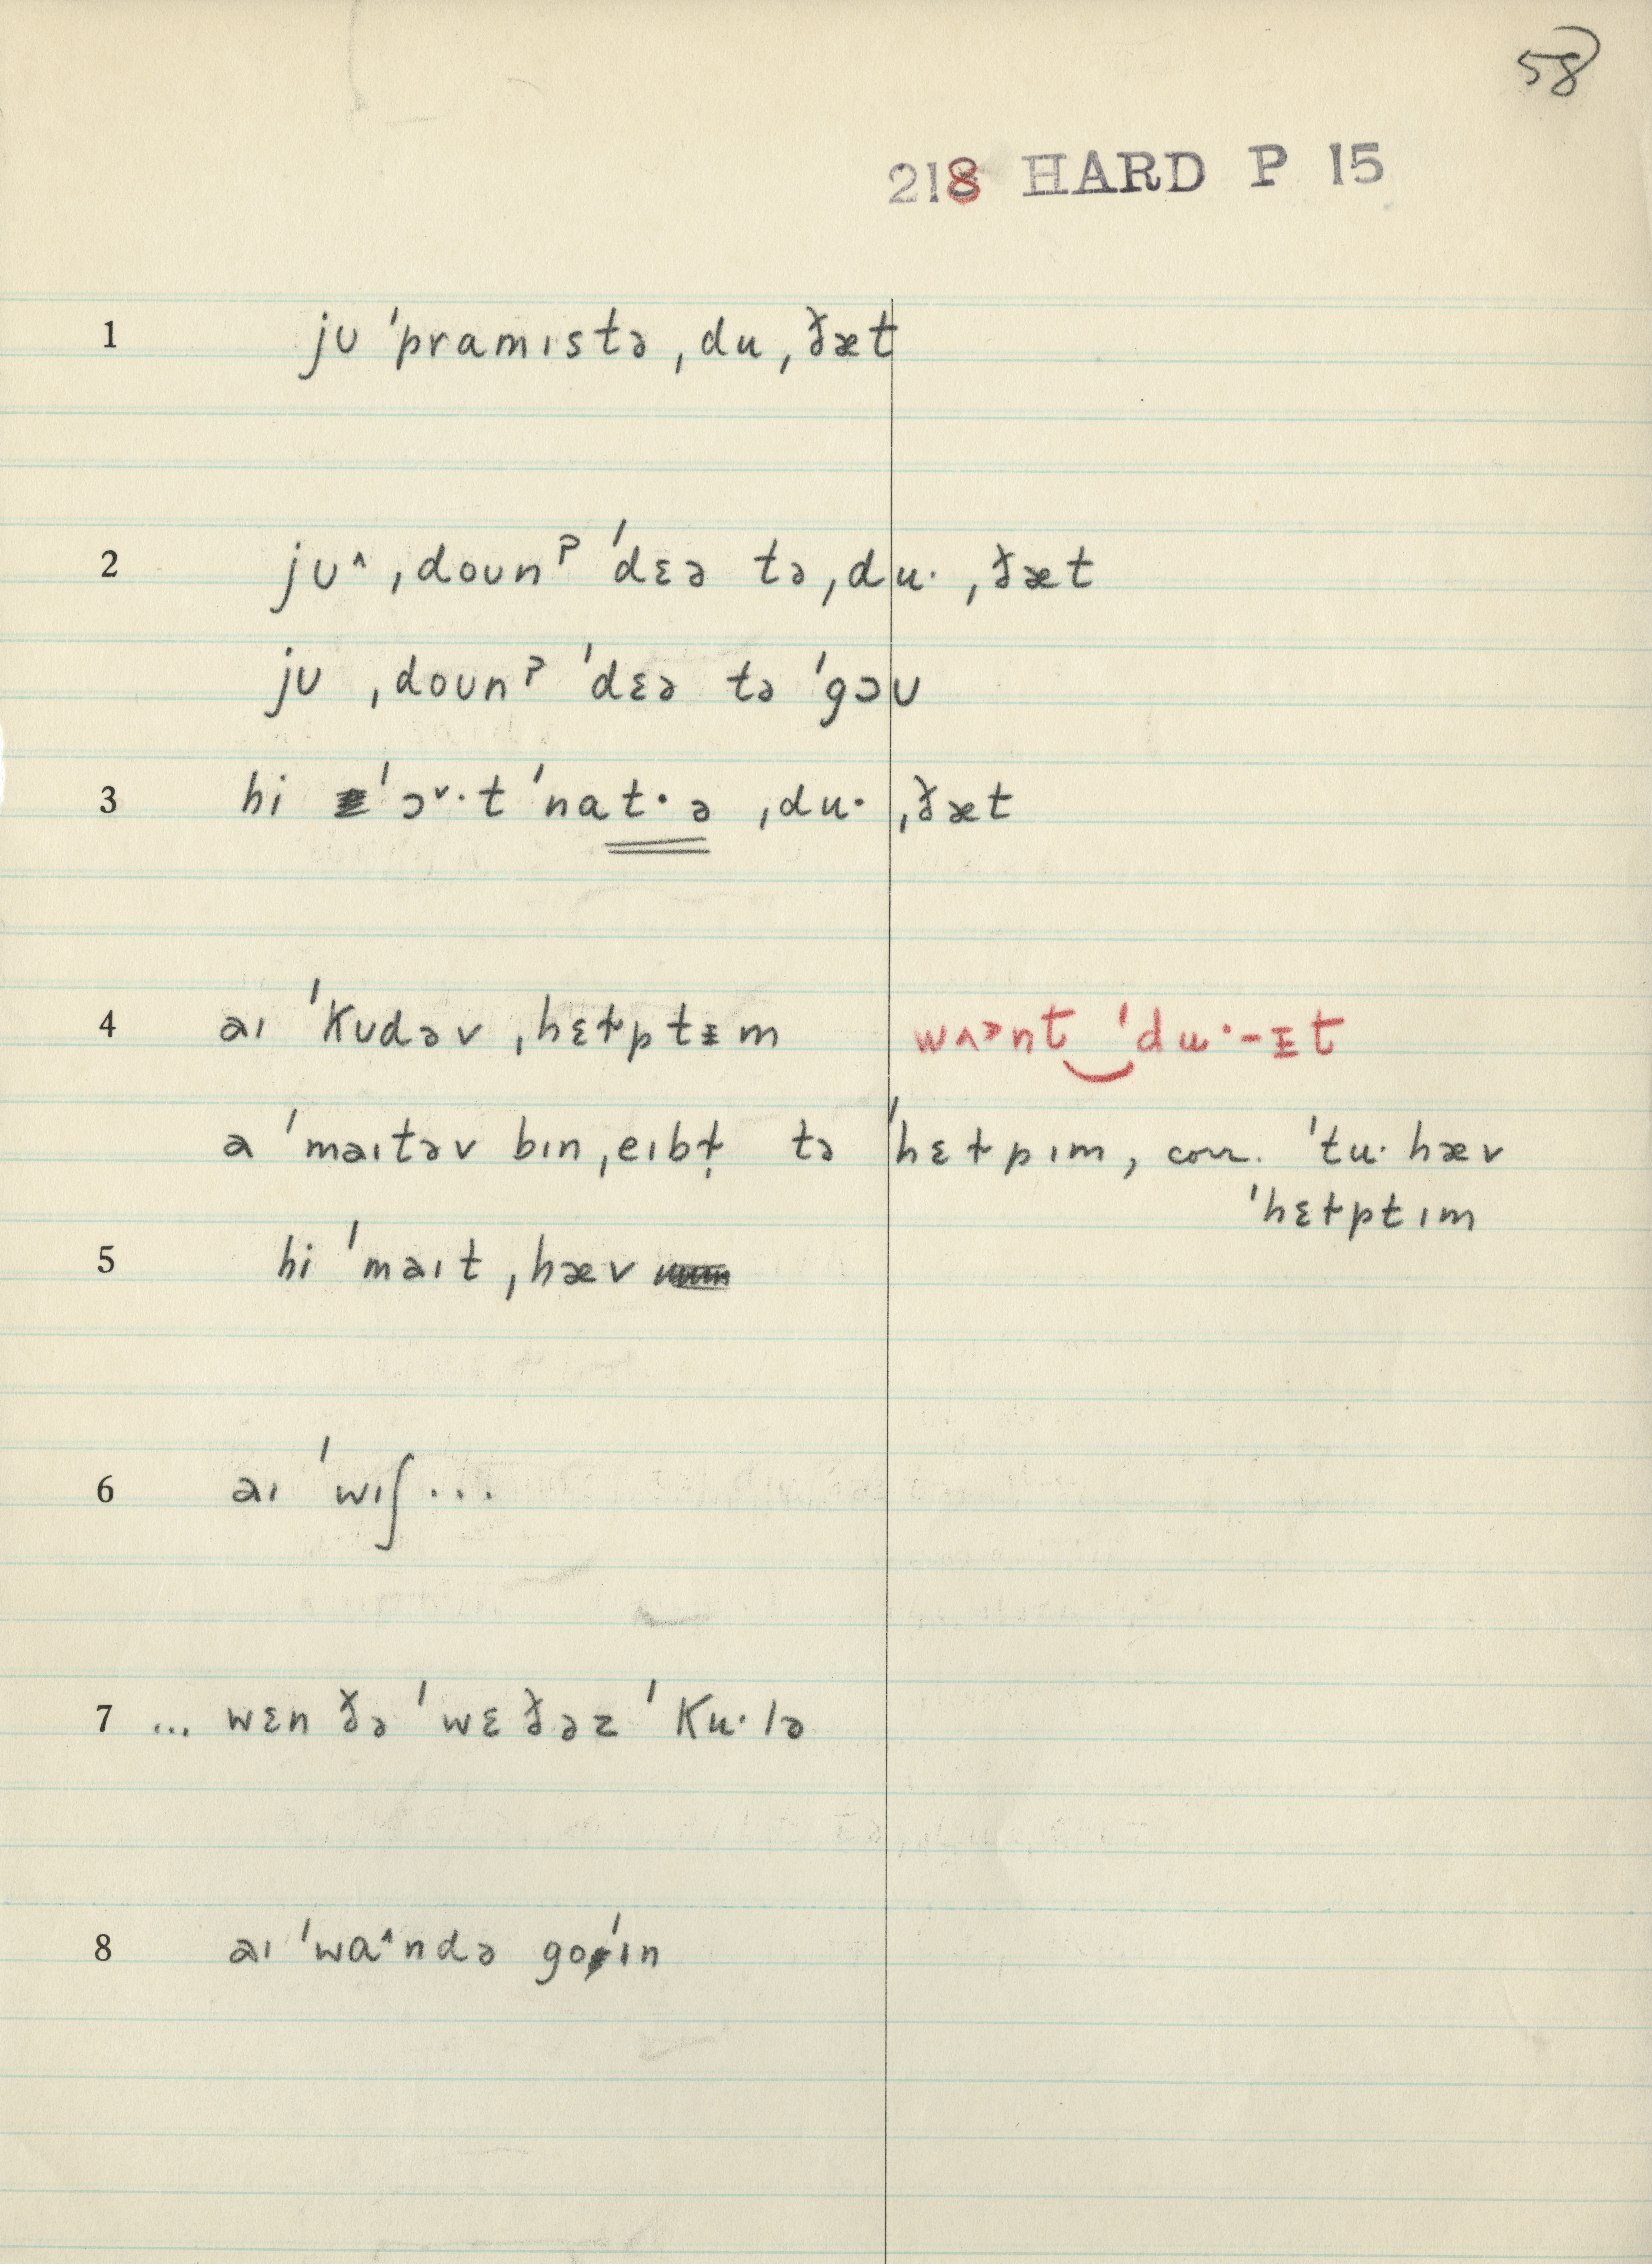 58
218 HARD P 15
1 jʊ ˈpramɪstə ˌdu ˌðæt
2 jʊ^ ˌdoʊnˀ ˈdɛə tə ˌdu· ˌðæt
jʊ ˌdoʊnˀ ˈdɛə tə ˈgɔʊ
3 hi ˈɔ˅·t ˈnat·ə ˌdu· ˌðæt
4 aɪ ˈkʊdəv ˌhɛɫptᵻm wʌɔnt‿ˈdu·-ᵻt
a ˈmaɪtəv bɪn ˌeɪbɫ̩ tə ˈhɛɫpɪm, corr. ˈtu· hæv
ˈhɛɫptɪm
5 hi ˈmaɪt ˌhæv
6 aɪ ˈwɪʃ...
7 ... wɛn ðə ˈwɛðəz ˈku·lə
8 aɪ ˈwɑ^ndə goˈɪn